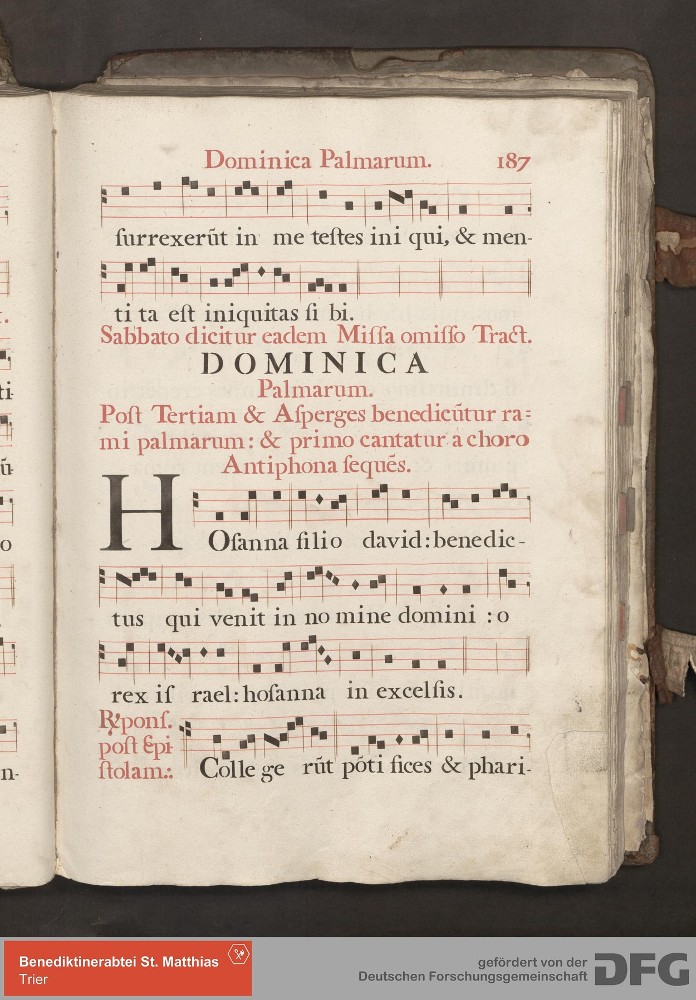 Dominica Palmarum. 187
ſurrexerūt in me teſtes ini qui, & men-
ti ta eſt iniquitas ſi bi.
Sabbato dicitur eadem Miſſa omiſſo Tract.
DOMINICA
Palmarum.
Poſt Tertiam & Aſperges benedicūtur ra=
mi palmarum: & primo cantatur a choro
Antiphona ſequēs.
HOſanna filio david: benedic-
tus qui venit in no mine domini : o
rex iſ rael: hoſanna in excelſis.
R̷ponſ.
poſt Epi
ſtolam.:.
Colle ge rūt pōti fices & phari-
ti
ū-
o
n-
Benediktinerabtei St. Matthias
Trier
gefördert von der
Deutschen Forschungsgemeinschaft
DFG